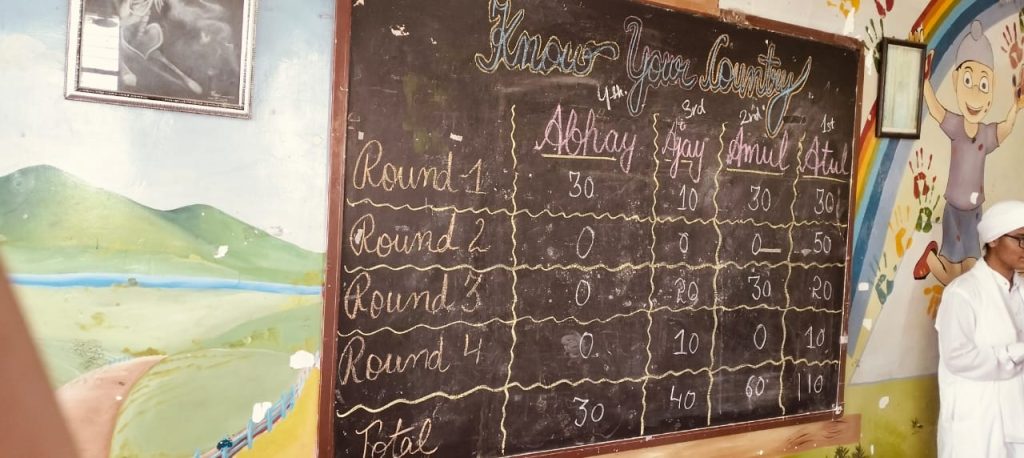 Know Your Country
4th 3rd 2nd 1st
Abhay Ajay Amul Atul
Round 1 30 10 30 30
Round 2 0 0 0 50
Round 3 0 20 30 20
Round 4 0 10 0 10
Total 30 40 60 110